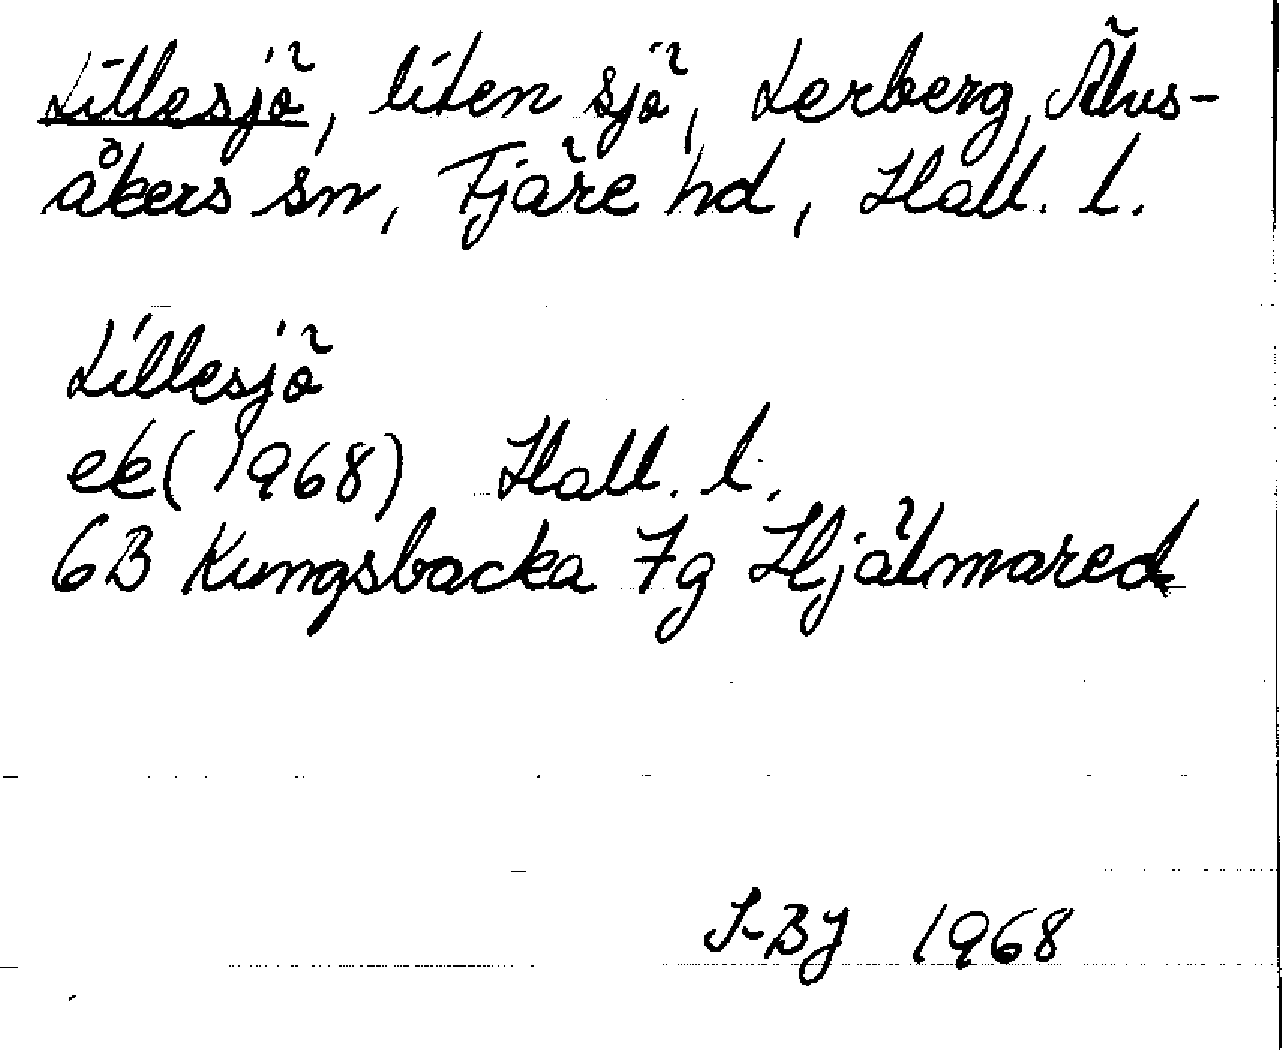 Lillesjö, liten sjö, Lerberg, Älvs-
åkers sn, Fjäre hd, Hall. l.
Lillesjö
ek(1968) Hall. l.
6B Kungsbacka 7g Hjälmared
S-BJ 1968